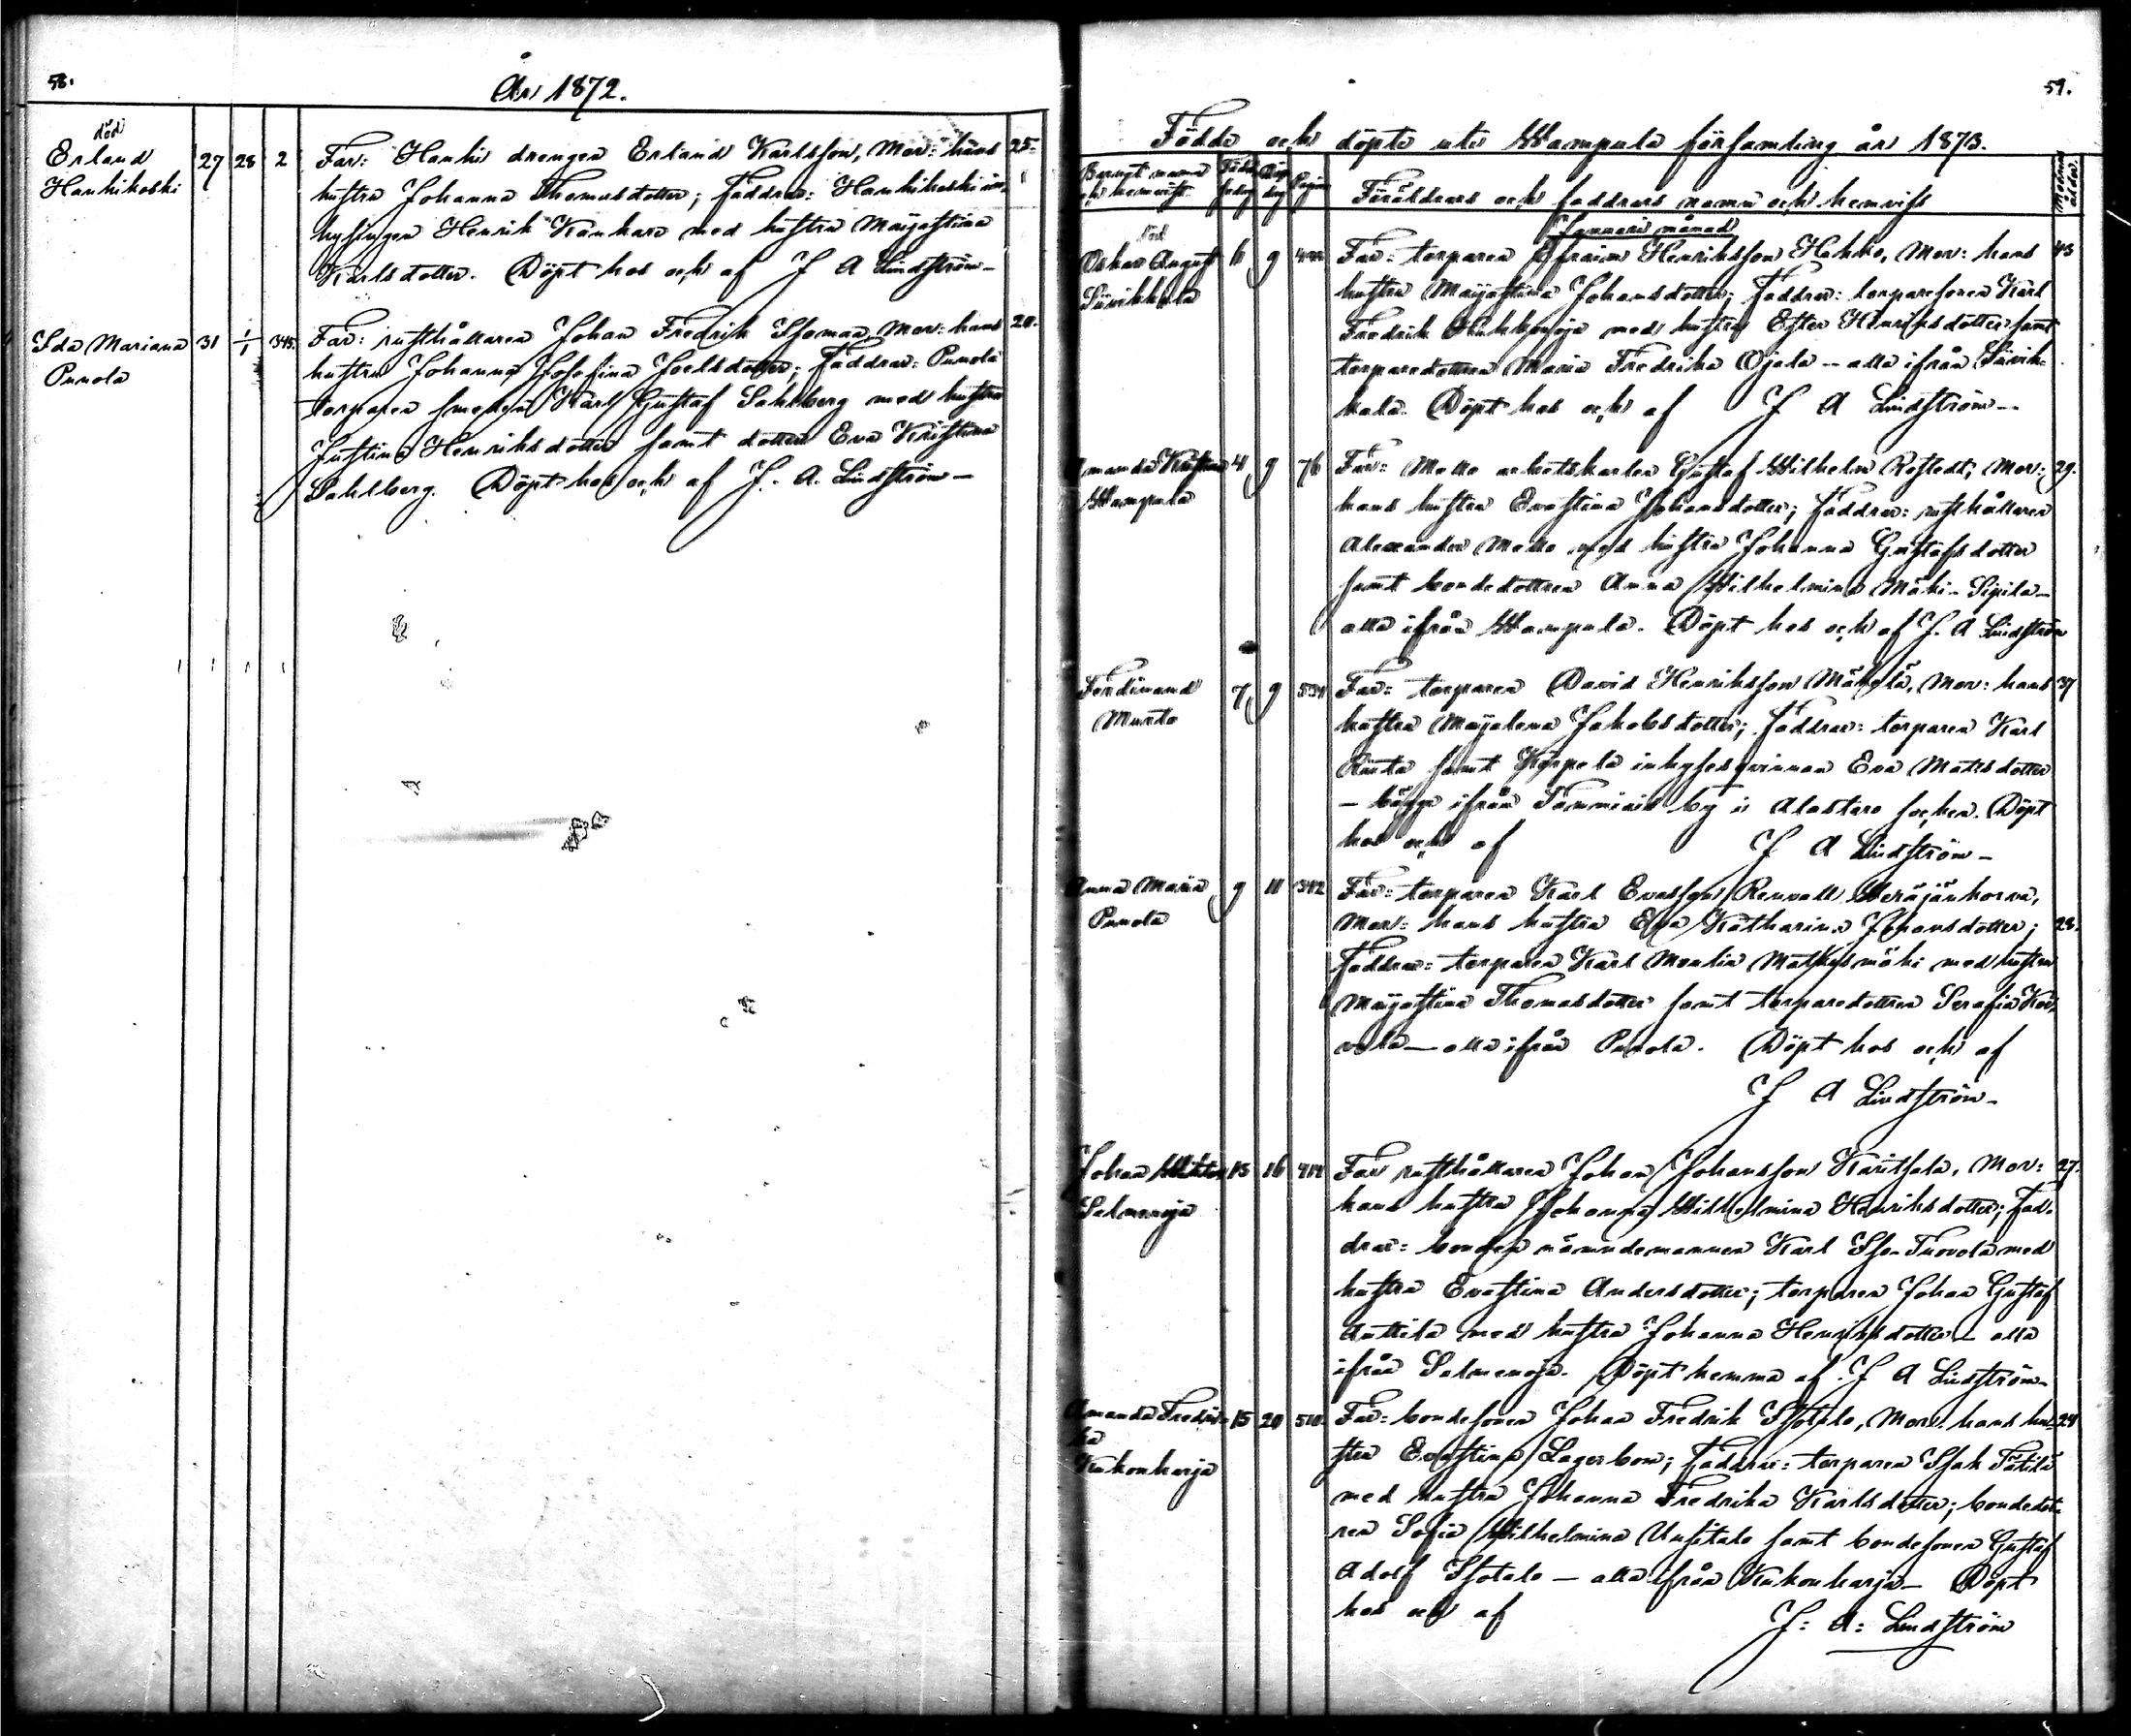 58.
År 1872.
död
Erland 27 28 2 Far: Hanhi drengen Erland Karlsson, Mor: hans 25.
Hanhikoski hustru Johanna Thomasdotter; Faddrar: Hanhikoski in-
hysingen Henrik Kanhare med hustru Majastina
Karlsdotter. Döpt hos och af J A Lindström
Ida Mariana 31 1/1 345. Far: rusthållaren Johan Fredrik Isoman, Mor: hans 20.
Punola hustru Johanna Josefina Joelsdotter; Faddrar: Punola
torparen smeden Karl Gustaf Sahlberg med hustru
Justina Henriksdotter samt dottren Eva Kristina
Sahlberg. Döpt hos och af J. A. Lindström
59.
Födde och döpte uti Wampula församling år 1873.
Barnets namn och hemvist Pagina Föräldrars och faddrars namn och hemvist Modrens ålder.
Januari månad
död
Oskar August 6 9 Far: torparen Efraim Henriksson Hakko, Mor: hans 43
Sürikkala hustru Majastina Johansdotter; Faddrar: torparesonen Karl
Fredrik med hustru Ester Henriksdotter samt
torparedottren Maria Fredrika Ojala - alla ifrån Sürik-
kala. Döpt hos och af J A Lindström
Amanda Kristina 4 9 76 Far: Mallo arbetskarlen Gustaf Wilhelm Rostedt, Mor: 29.
Wampula hans hustru Evastina Johansdotter; Faddrar: rusthållaren
Alexander Mallo med hustru Johanna Gustafsdotter
samt bondedottren Anna Wilhelmina Mäki-Sipila
alla ifrån Wampula. Döpt hos och af J. A Lindström
Ferdinand 7 9 534 Far: torparen David Henriksson Mäkelä, Mor: hans 37
Murto hustru Majalena Jakobsdotter; Faddrar: torparen Karl
Rinta samt Köppelä inhyseqvinnan Eva Matsdotter
- bägge ifrån Tammiais by i Alastaro socken. Döpt
hos och af J A Lindström
Anna Maria 9 11 342 Far: torparen Karl Evasson Renvall Meräjänkorva,
Punola Mor: hans hustru Eva Katharina Johansdotter; 28.
Faddrar: torparen Karl Moulin Mathusmäki med hustru
Majastina Thomasdotter samt torparedottren Serafia Kor-
vela - alla ifrån Punola. Döpt hos och af
J A Lindström
Johan 13 16 414 Far rusthållaren Johan Johansson Karitsala, Mor: 27.
Salmenoja hans hustru Johanna Wilhelmina Henriksdotter; Fad-
drar: bonden nämndemannen Karl Iso-Tuovola med
hustru Evastina Andersdotter; torparen Johan Gustaf
Anttila med hustru Johanna Henriksdotter - alla
ifrån Salmenoja. Döpt hemma af J A Lindström
Amanda Fredri- 15 20 510. Far: bondesonen Johan Fredrik Isotalo, Mor: hans hu- 24
ka stru Evastina Lagerbom; Faddrar: torparen Isak Tätilä
Kukonharja med hustru Johanna Fredrika Karlsdotter; bondedott-
ren Sofia Wilhelmina Uusitalo samt bondesonen Gustaf
Adolf Isotalo - alla ifrån Kukonharja - Döpt
hos och af J: A: Lindström